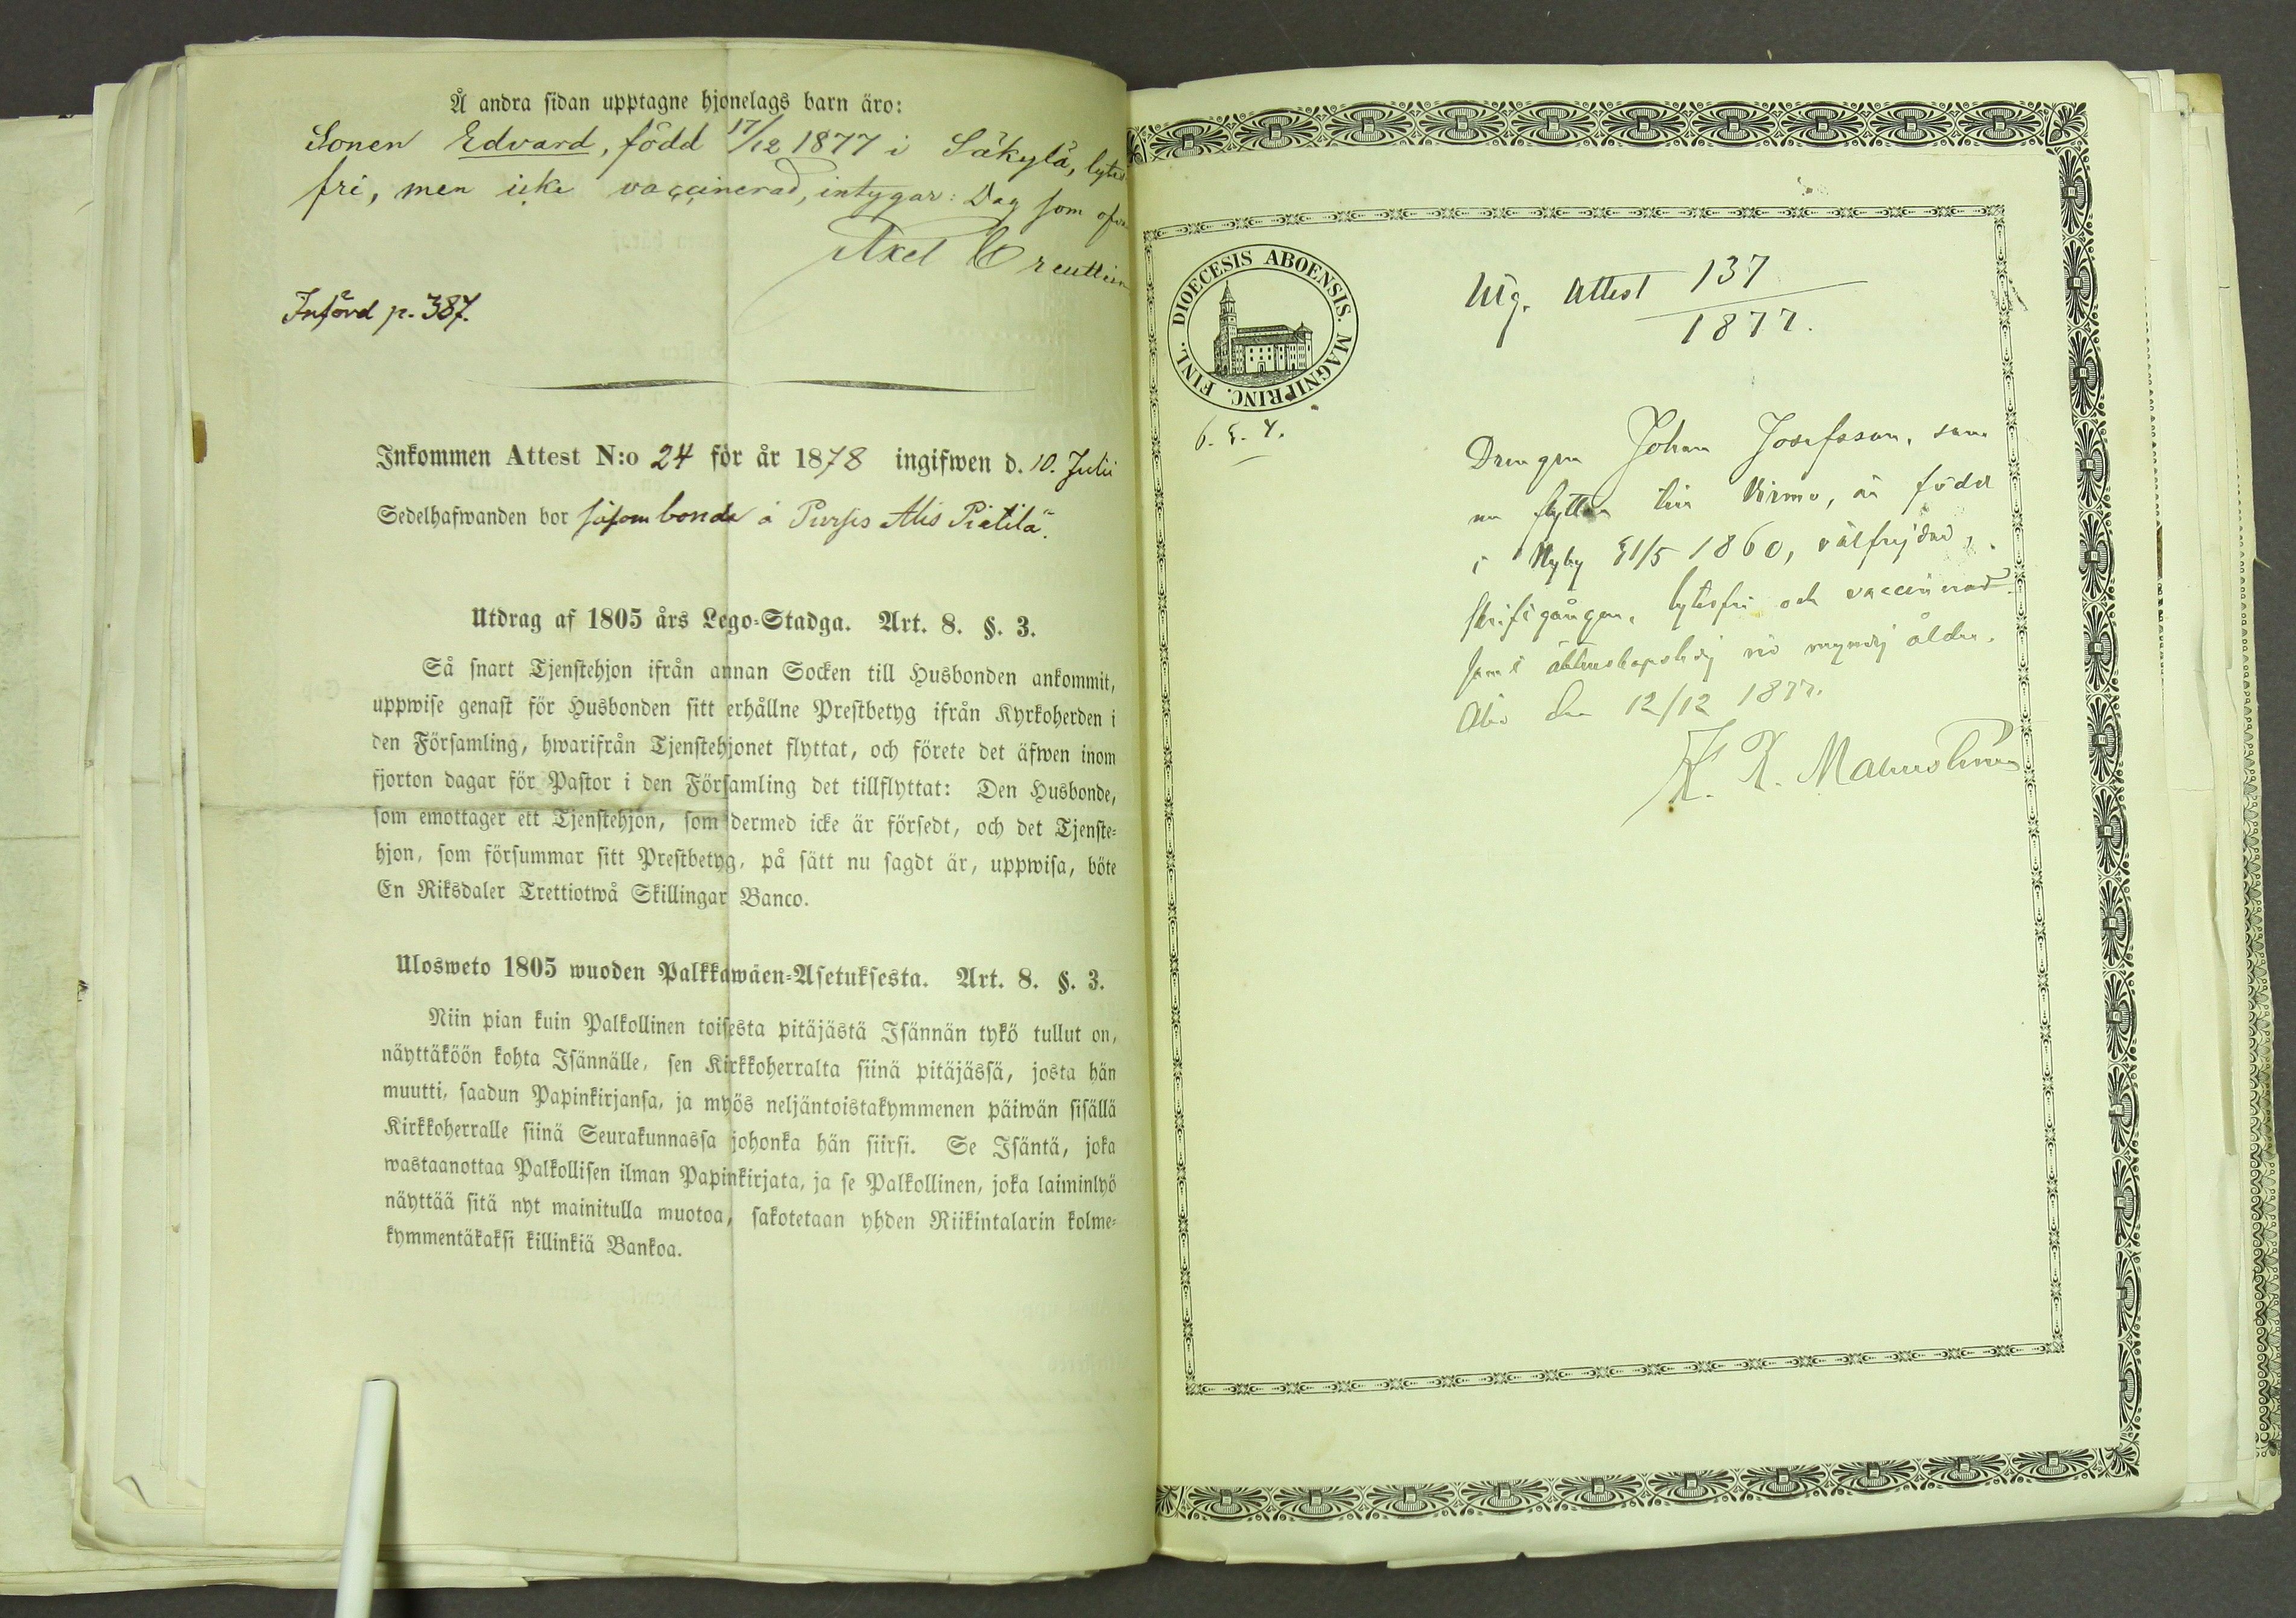 Å andra sidan upptagne hjonelags barn äro:
Sonen Edvard, född 17/12 1877 i Säkylä, lytes
fri, men icke vaccinerad, intygar: Dag som ofvan
Axel
Införd p. 387.
Inkommen Attest N:o 24 för år 1878 ingifwen d. 10. Julii
Sedelhafwanden bor såsom bonde å Alis Pietilä.
Utdrag af 1805 års Lego-Stadga. Art. 8. §. 3.
Så snart Tjenstehjon ifrån annan Socken till Husbonden ankommit,
uppwise genast för Husbonden sitt erhållne Prestbetyg ifrån Kyrkoherden i
den Församling, hwarifrån Tjenstehjonet flyttat, och förete det äfwen inom
fjorton dagar för Pastor i den Församling det tillflyttat: Den Husbonde,
som emottager ett Tjenstehjon, som dermed icke är försedt, och det Tjenste-
hjon, som försummar sitt Prestbetyg, på sätt nu sagdt är, uppwisa, böte
En Riksdaler Trettiotwå Skillingar Banco.
Ulosweto 1805 wuoden Palkkawäen-Asetuksesta. Art. 8. §. 3.
Niin pian kuin Palkollinen toisesta pitäjästä Isännän tykö tullut on,
näyttäköön kohta Isännälle, sen Kirkkoherralta siinä pitäjässä, josta hän
muutti, saadun Papinkirjansa, ja myös neljäntoistakymmenen päiwän sisällä
Kirkkoherralle siinä Seurakunnassa johonka hän siirsi. Se Isäntä, joka
wastaanottaa Palkollisen ilman Papinkirjata, ja se Palkollinen, joka laiminlyö
näyttää sitä nyt mainitulla muotoa, sakotetaan yhden Riikintalarin kolme-
kymmentäkaksi killinkiä Bankoa.
DIOECESIS ABOENSIS. MAGNIPRINC. FINL.
Utg. Attest 137
1877.
Drengen Johan Josefsson, som
nu flyttar till Virmo, är född
i Nyby 31/5 1860, välfrejdad,
skriftgången, lytesfri och vaccinerad
samt äktenskapsledig vid myndig ålder.
Åbo den 12/12 1877.
K. K.